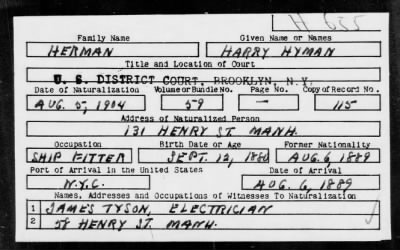 H 655
Family Name Given Name or Names
HERMAN HARRY HYMAN
Title and Location of Court
U. S. DISTRICT COURT, BROOKLYN, N.Y.
Date of Naturalization Volume or Bundle No. Page No. Copy of Record No.
AUG. 5, 1904 59 — 115
Address of Naturalized Person
131 HENRY ST. MANH.
Occupation Birth Date or Age Former Nationality
SHIP FITTER SEPT. 12, AUG. 6, 1889
Port of Arrival in the United States Date of Arrival
N.Y.C. AUG. 6, 1889
Names, Addresses and Occupations of Witnesses To Naturalization
1 JAMES TYSON, ELECTRICIAN
2 58 HENRY ST. MANH.